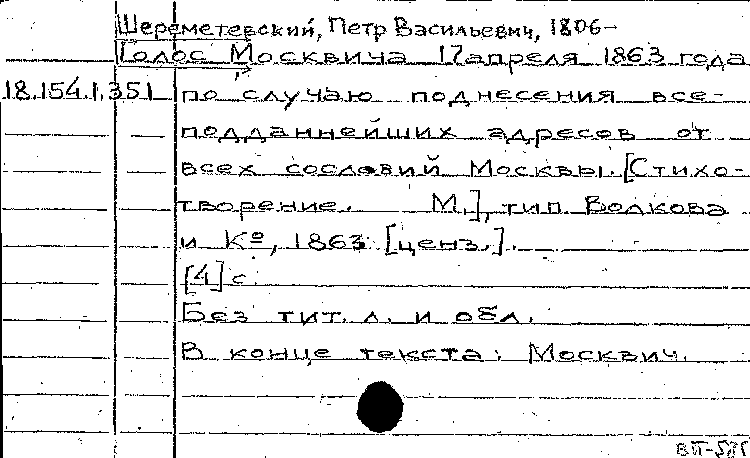 Шереметевский, Петр Васильевич, 1806-
Голос Москвича 17 апреля 1863 года
18.154.1.351 по случаю поднесения все-
подданнейших адресов от
всех сословий Москвы. [Стихо-
творение. М.], тип Волкова
и Кº, 1863 [ценз.].
[4] с.
Без тит. л. и обл.
В конце текста: Москвич.